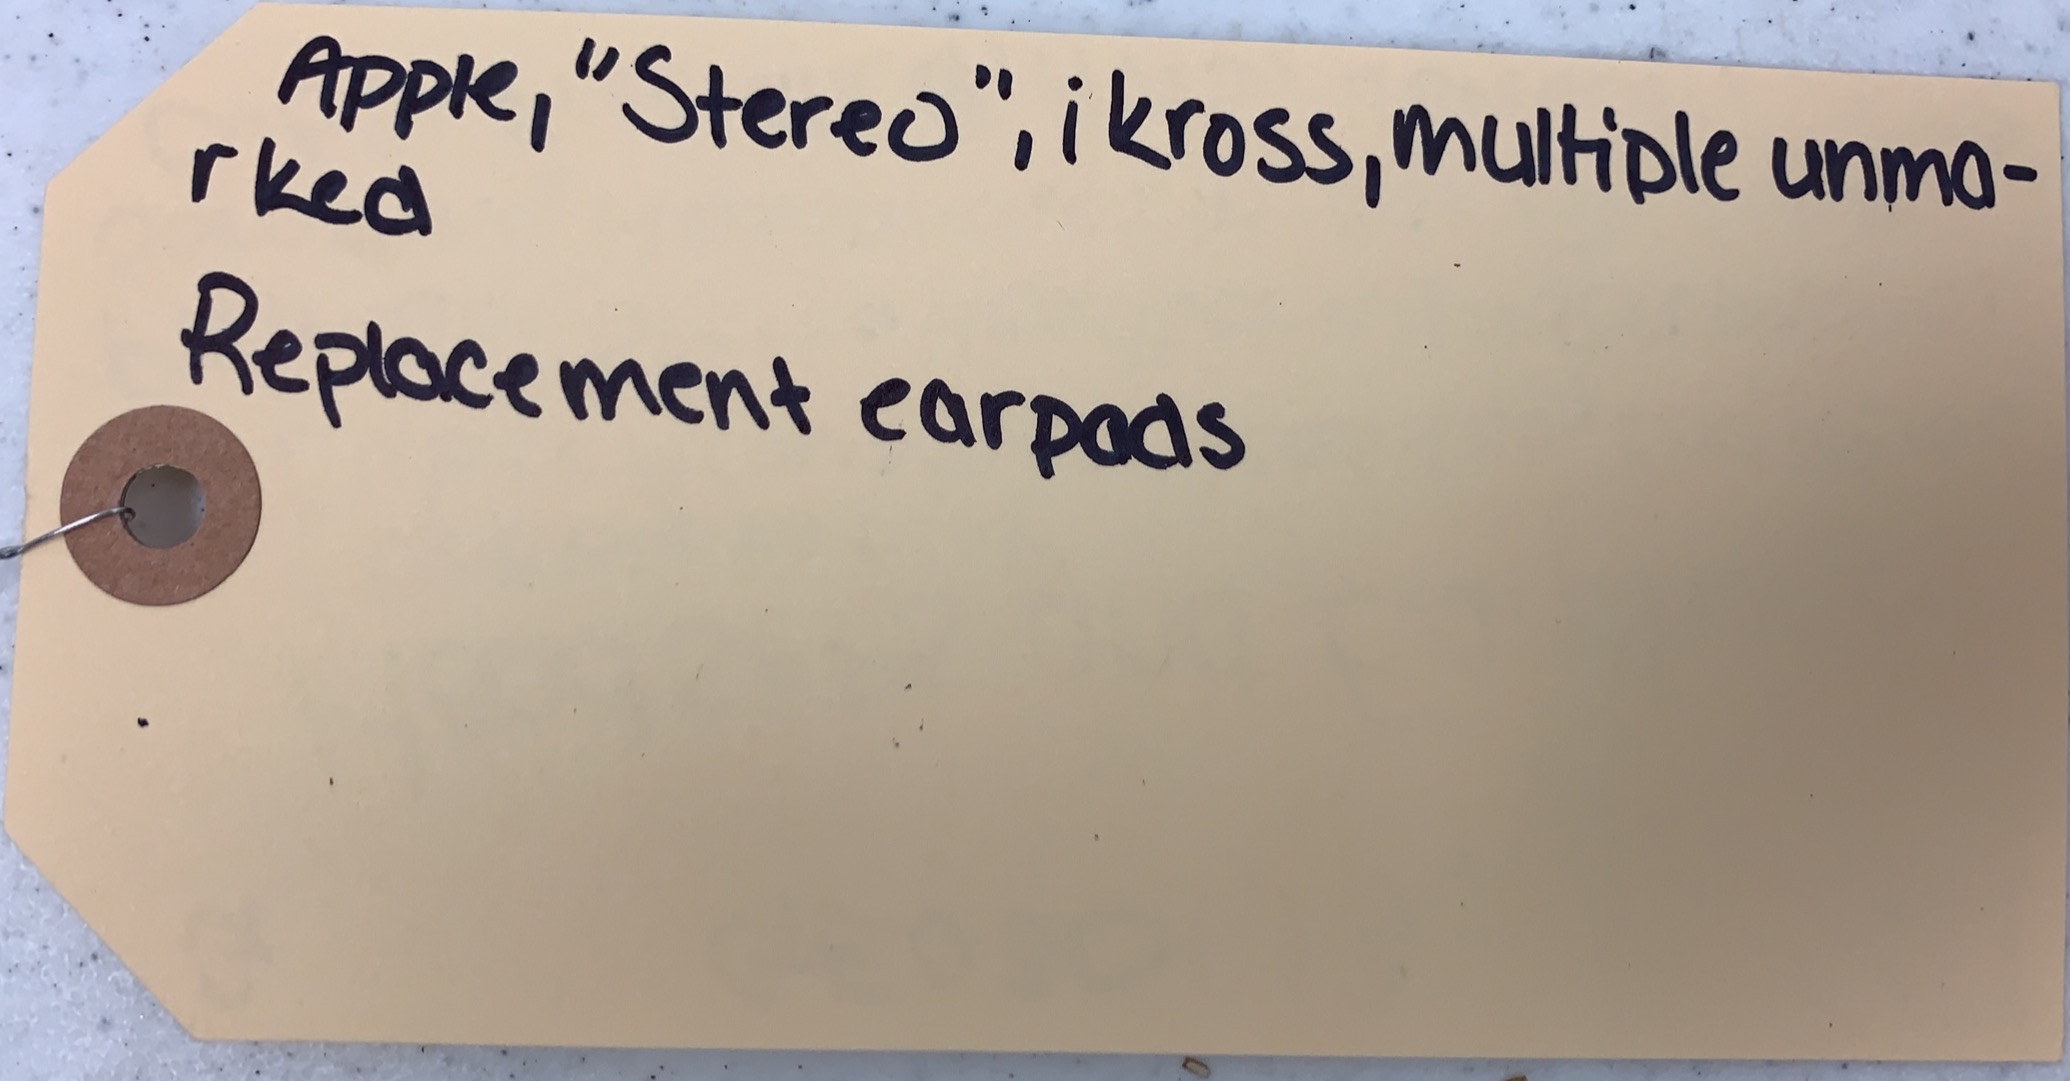 Apple, "Stereo", ikross, multiple unma-
rked
Replacement earpads